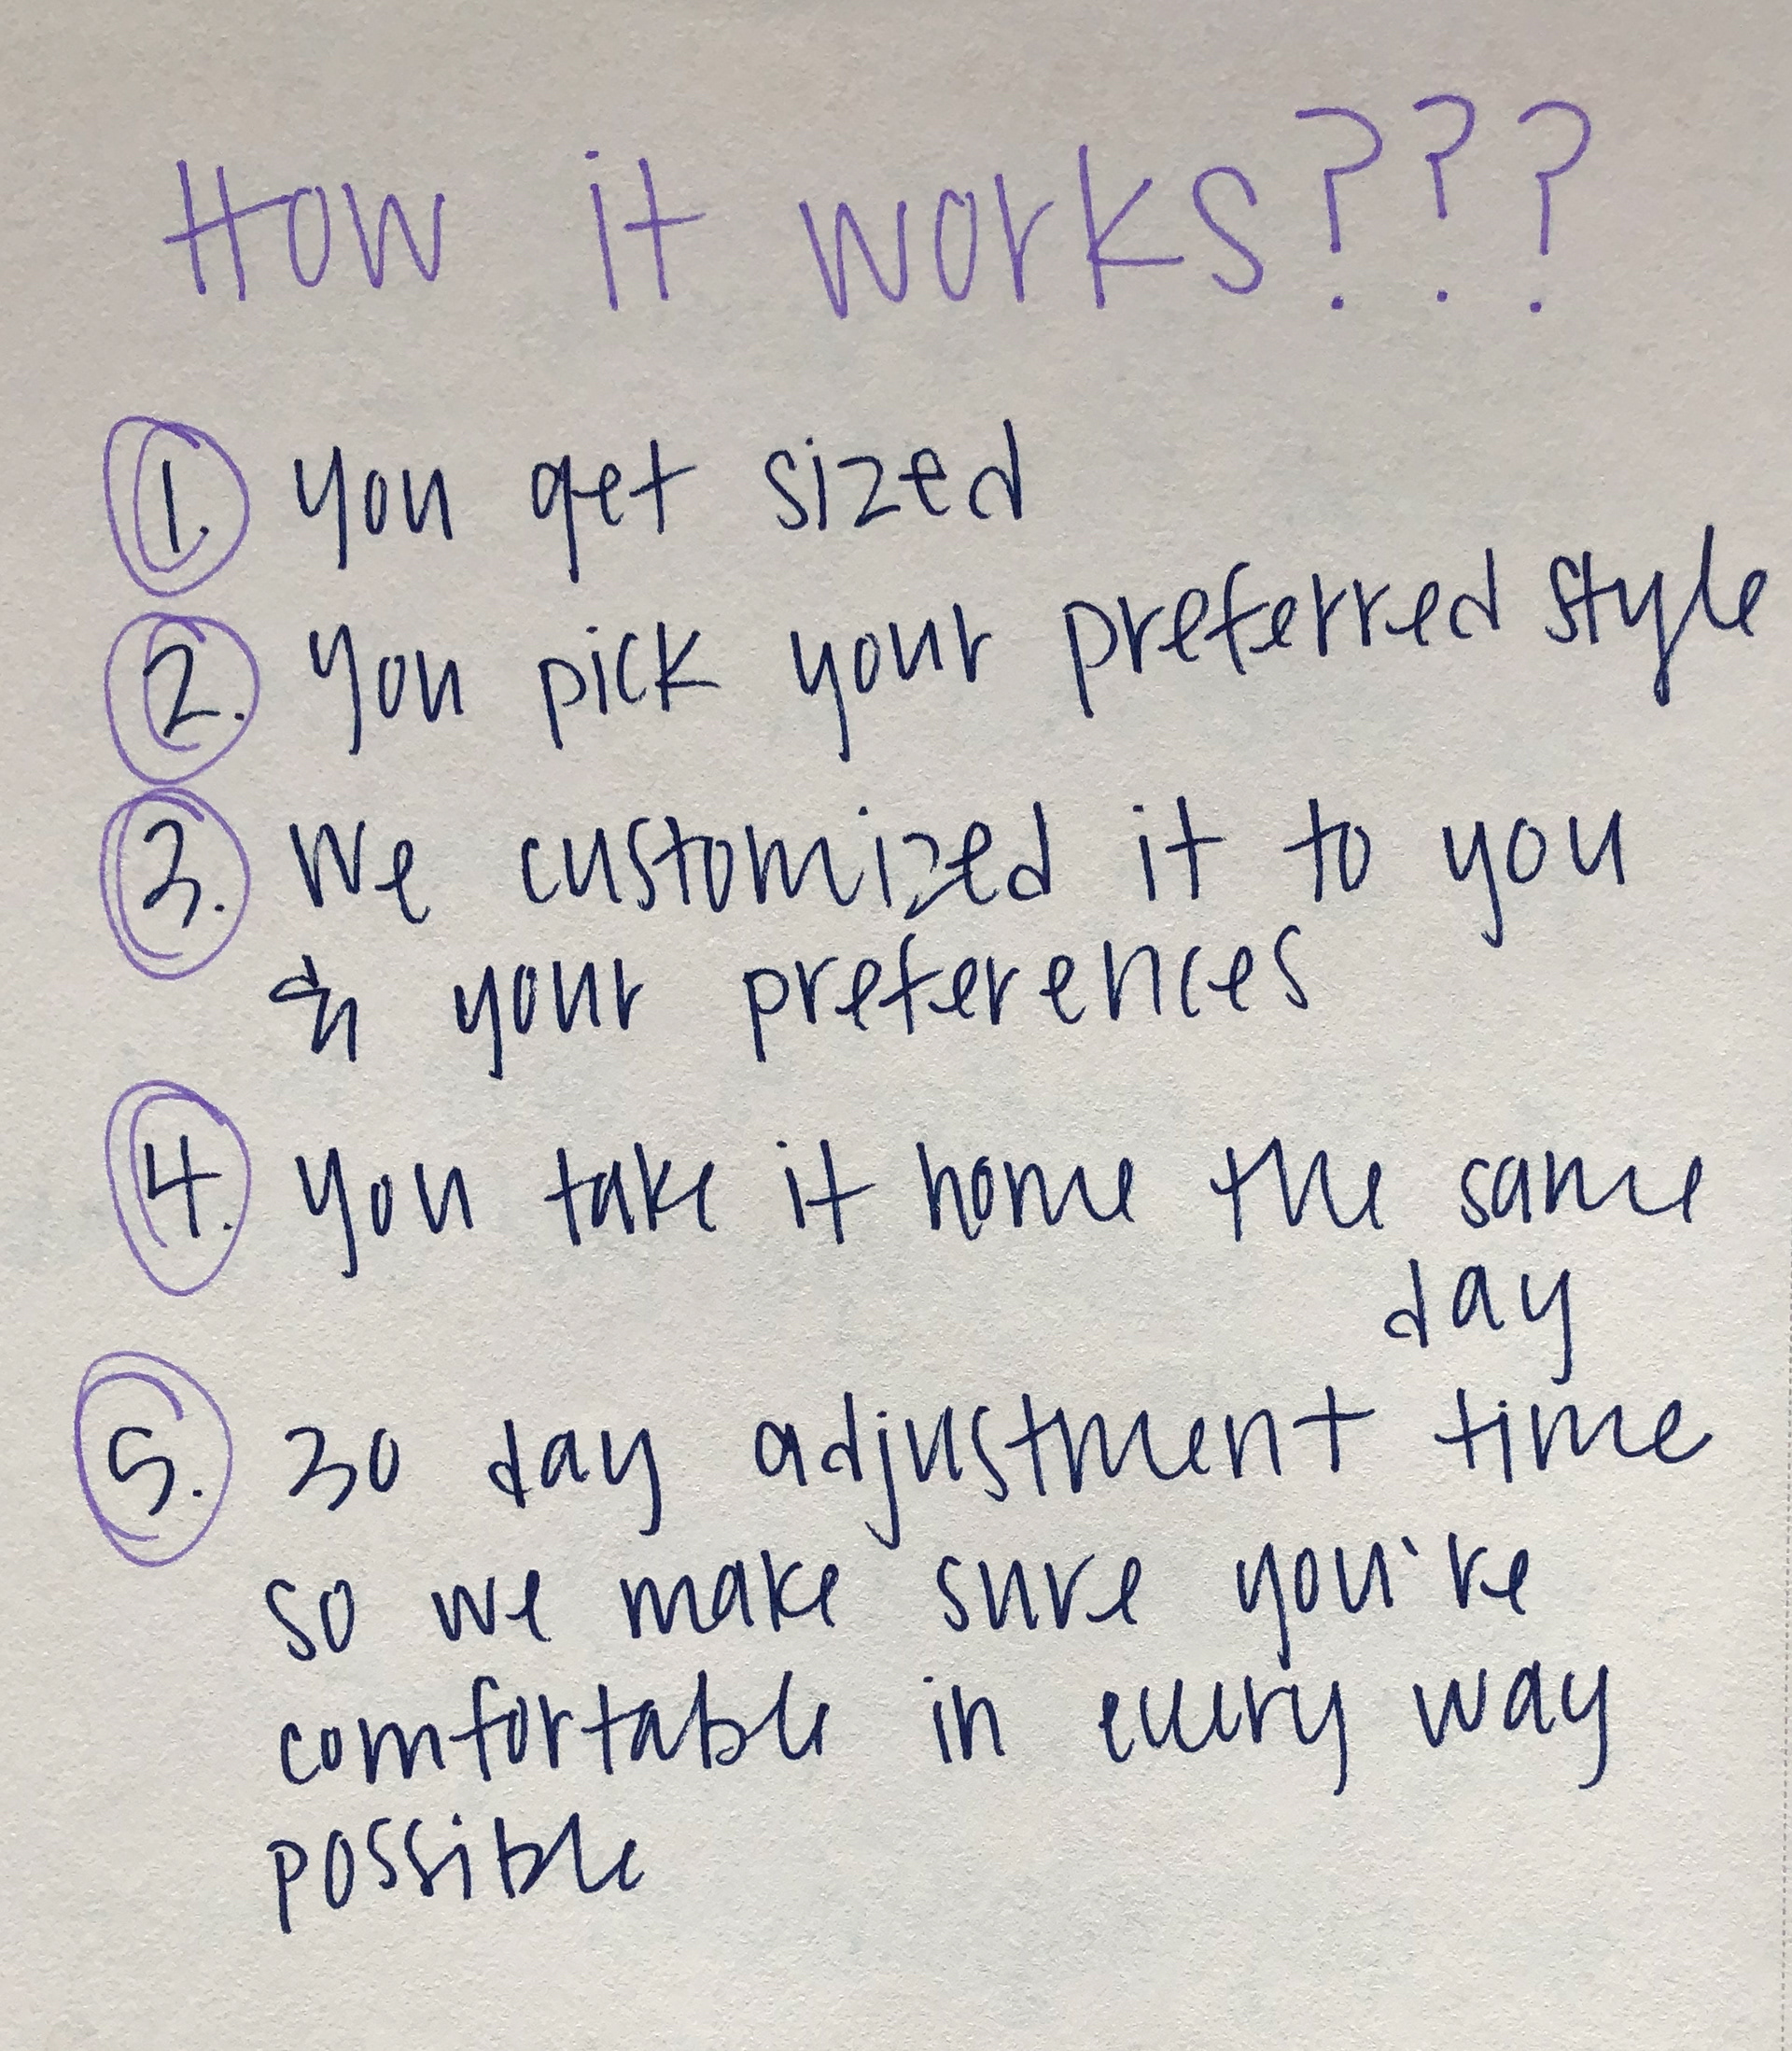 How it works???
1. you get sized
2. you pick your preferred style
3. We customized it to you
& your preferences
4. you take it home the same
day
5. 30 day adjustment time
so we make sure you're
comfortable in every way
possible